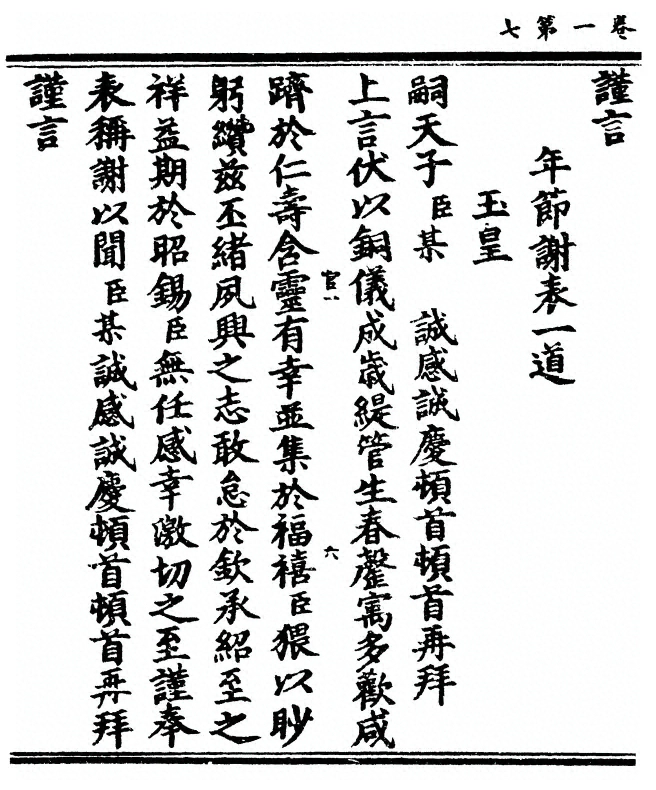 卷一第七
謹言
年節謝表一道
玉皇
嗣天子臣某 誠感誠慶頓首頓首再拜
上言伏以銅儀成歲緹管生春罄寓多歡咸
躋於仁壽含靈有幸並集於福禧臣猥以眇
官一 六
躬纘茲丕緒夙興之志敢怠於欽承紹至之
祥益期於昭錫臣無任感幸激切之至謹奉
表稱謝以聞臣某誠感誠慶頓首頓首再拜
謹言